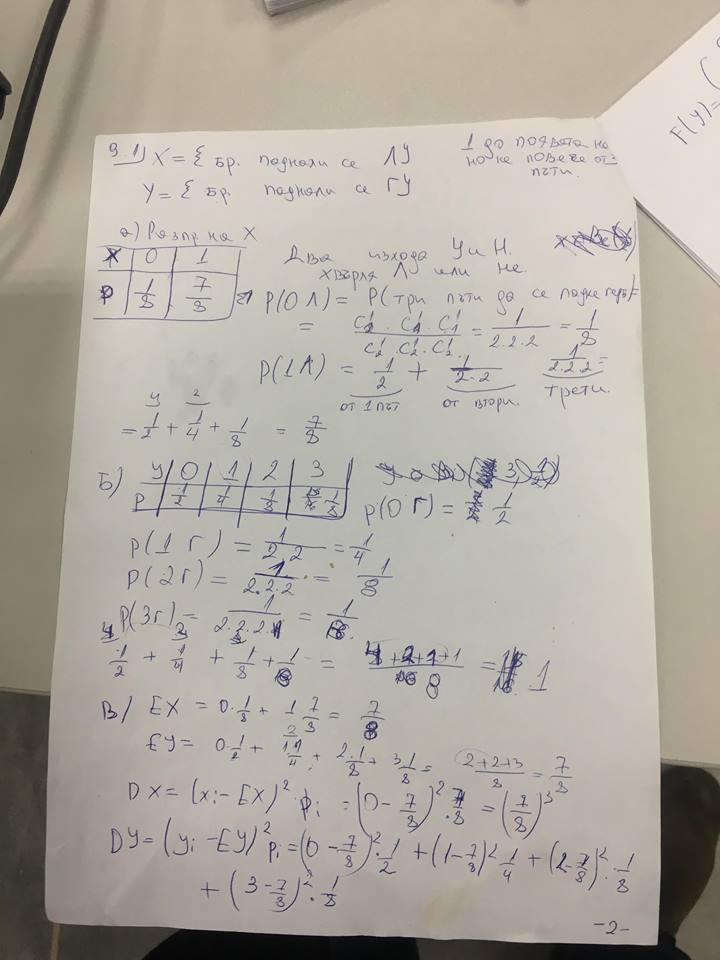 9.1) X = { бр. паднали се ЛУ
1 до появата на не повече от 3 пъти.
Y = { бр. паднали се ГУ
а) Разпр. на X
X | 0 | 1
P | 1/8 | 7/8
Два изхода У и Н.
хвърля Л или не.
P(0Л) = P(три пъти да се падне герб) =
= C¹₁ . C¹₁ . C¹₁ / C¹₂ . C¹₂ . C¹₂ = 1/2.2.2 = 1/8
P(1Л) = 1/2 + 1/2.2 1/2.2.2 =
от 1 път от втори. трети.
= 1/2 + 1/4 + 1/8 = 7/8
Б) Y | 0 | 1 | 2 | 3
P | 1/2 | 1/4 | 1/8 | 1/8
P(0Г) = 1/2
P(1Г) = 1/2.2 = 1/4
P(2Г) = 1/2.2.2 = 1/8
P(3Г) = 1/2.2.2.1 = 1/8
1/2 + 1/4 + 1/8 + 1/8 = 4+2+1+1/8 = 1
В/ EX = 0.1/8 + 1 7/8 = 7/8
EY = 0.1/2 + 1.1/4 + 2.1/8 + 3 1/8 = 2+2+3/8 = 7/8
DX = (xi - EX)² pi = (0 - 7/8)² . 7/8 = (7/8)³
DY = (yi - EY)² pi = (0 - 7/8)² . 1/2 + (1 - 7/8)² 1/4 + (2 - 7/8)² . 1/8
+ (3 - 7/8)² . 1/8
-2-
F(y) =